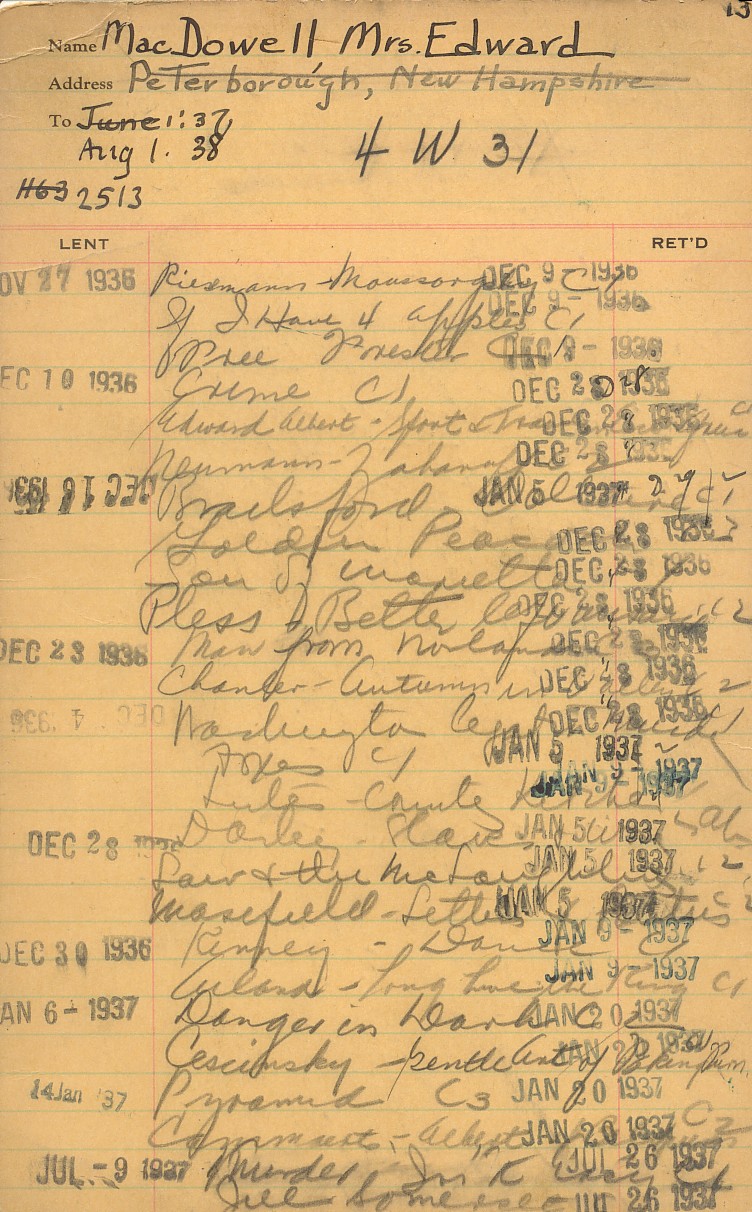 13
Name MacDowell Mrs. Edward
Address Peterborough, New Hampshire
To June 1. 37
Aug 1. 38
4 W 31
H63 2513
LENT RET'D
OV 27 1936 Riesemann - Moussorgsky C1 DEC 9 - 1936
If I Have 4 Apples C1 DEC 9 - 1936
Free Forester C1 DEC 9 - 1936
EC 10 1936 Crime C1 DEC 28 1936
Edward Albert - Sport & DEC 28 1936
Neumann - Zaharoff DEC 28 1936
DEC 16 1936 Brailsford - C1 JAN 5 1937
Golden Peacock DEC 28 1936
Son of Marietta DEC 28 1936
Pless D Better left C2 DEC 28 1936
DEC 23 1936 Man from Norlands DEC 28 1936
Chanler - Autumn in Valley C2 DEC 28 1936
DEC 4 1936 Washington DEC 28 1936
Foxes C1 JAN 5 1937
Lutes - Country Kitchen JAN 9 - 1937
DEC 28 1936 JAN 5 1937
Law & the McLaughlins C2 JAN 5 1937
Masefield - Letters C2 JAN 5 1937
DEC 30 1936 Kenney - JAN 9 - 1937
- Long Live the King C1 JAN 9 - 1937
AN 6 - 1937 Danger in Dark C2 JAN 20 1937
Cescinsky - Gentle Art of Faking Furn. JAN
14 Jan '37 Pyramid C3 JAN 20 1937
Cammaerts - Albert C2 JAN 20 1937
JUL - 9 1937 Murder in R C1 JUL 26 1937
Jill Somerset JUL 26 1937